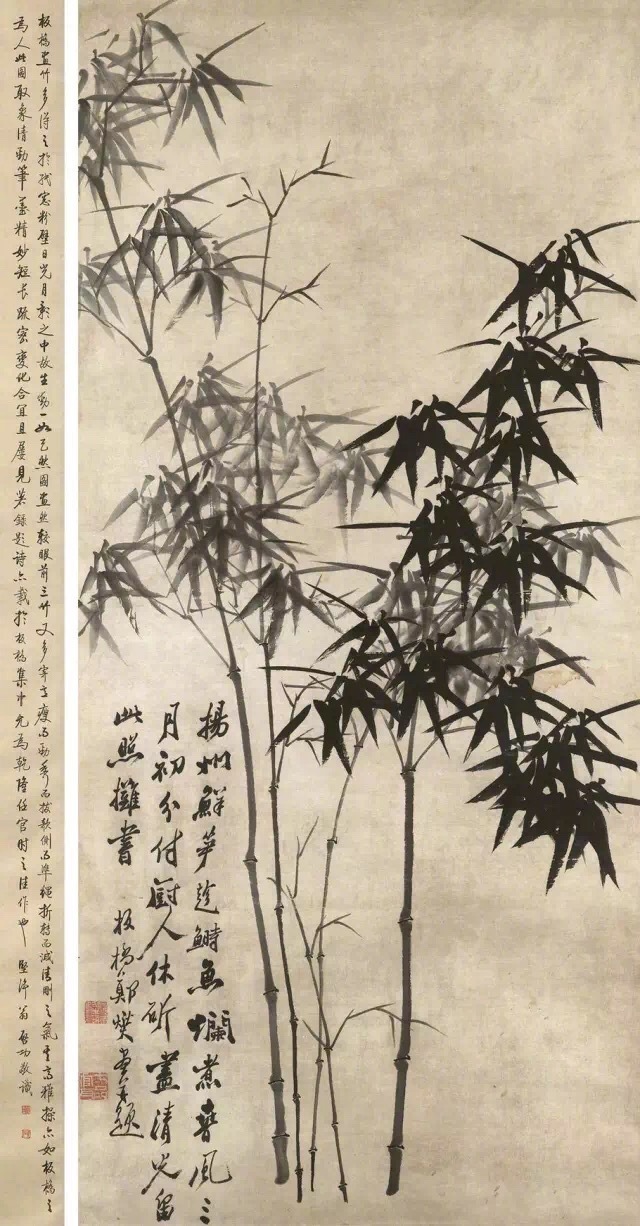 揚州鮮笋趁鰣魚爛煮春風三
月初分付廚人休斫盡清光留
此照攤書
板橋鄭燮畫并題
板橋畫竹多得之於紙窓粉壁日光月影之中故生動一如已然圖畫然較眼前之竹又多瘦而勁秀而拔欹側而準繩折轉而清剛之氣其高雅操亦如板橋之
為人此圖取象清勁筆墨精妙短長疏密變化合宜且屢見著錄題詩亦載於板橋集中尤為乾隆任官時之佳作也 堅淨翁啟功敬識